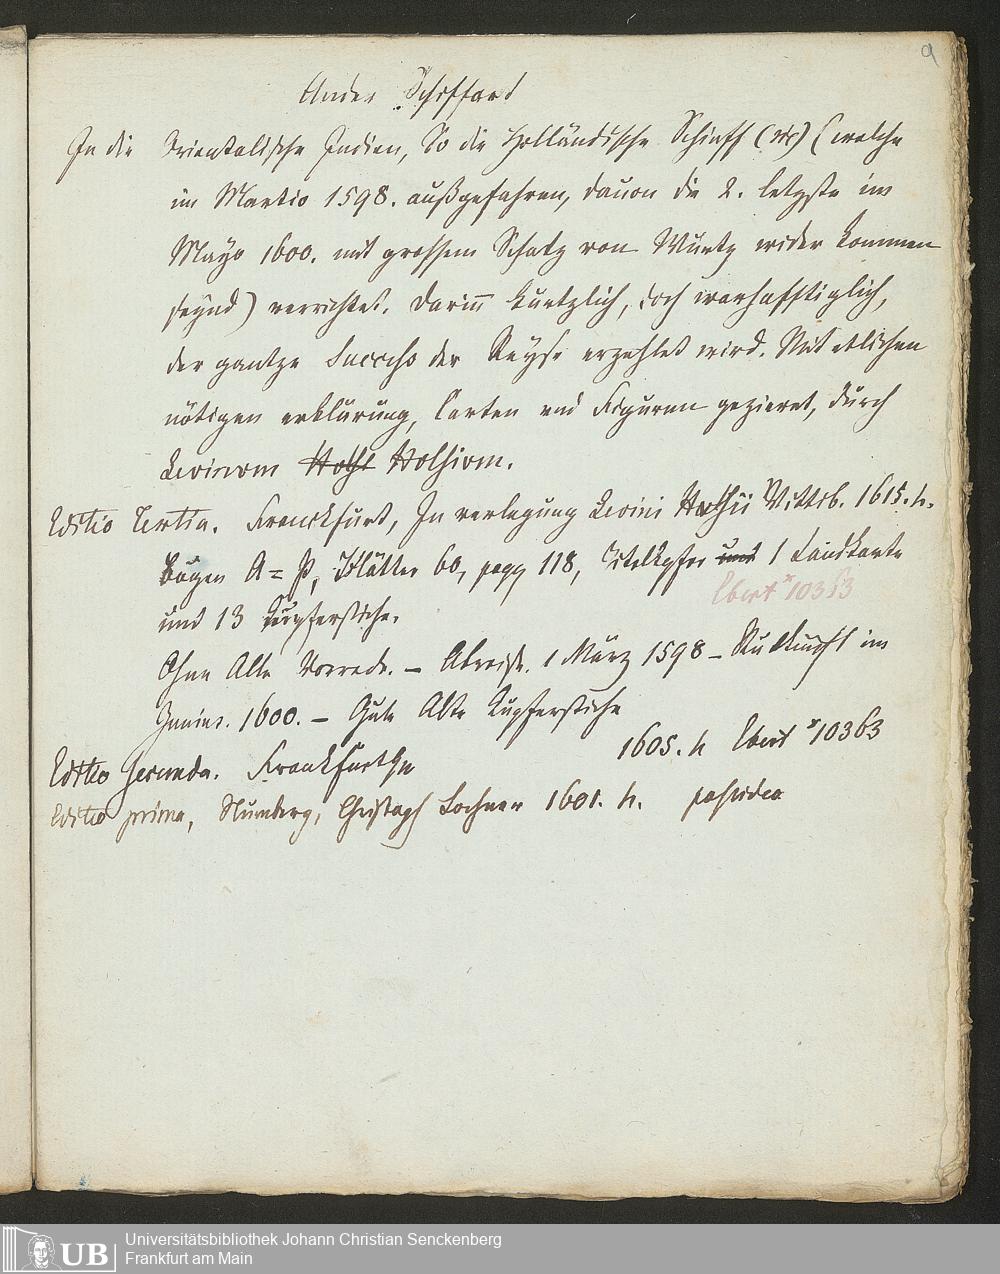 9
Ander Schiffart
In die Orientalische Indien, So die Holländische Schieff (sic) (welche
im Martio 1598. außgefahren, dauon die 2. letzste im
Mayo 1600. mit grossem Schatz von Wurtz wider kommen
seynd) verrichtet. Darinn kurtzlich, doch warhafftiglich,
der gantze Success der Reyse erzehlet wird. Mit etlichen
nötigen erklärung, Carten und Figuren gezieret, durch
Levinum Hulsium.
Editio Tertia. Franckfurt, In verlegung Levini Hulsii Wittib. 1615. 4.
Bogen A = P, Blätter 60, pagg 118, Titelkpfer und 1 Landkarte
Ebert * 10363
und 13 Kupferstiche.
Ohne Alte Vorrede. – Abreise. 1 März 1598 – Rückkunft im
Junius. 1600. – Gute Alte Kupferstiche
Editio Secunda. Frankfurt 1605. 4 Ebert * 10363
Editio prima, Nürnberg, Christoph Lochner 1601. 4. possideo
UB
Universitätsbibliothek Johann Christian Senckenberg
Frankfurt am Main